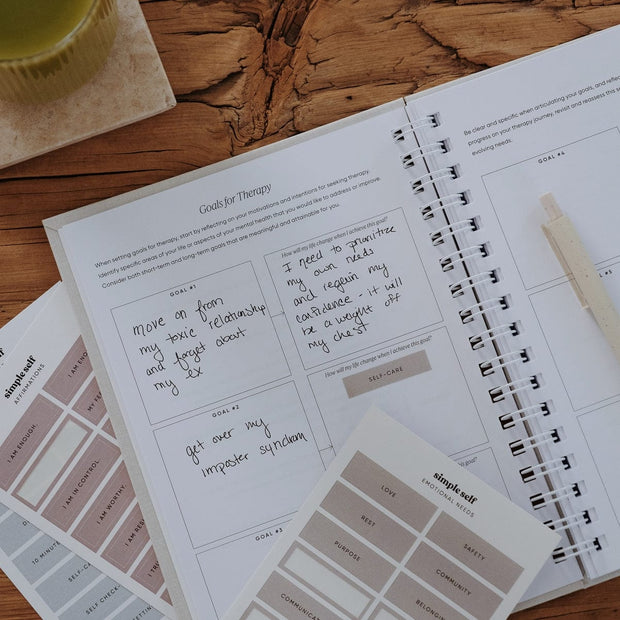 Goals for Therapy
When setting goals for therapy, start by reflecting on your motivations and intentions for seeking therapy.
Identify specific areas of your life or aspects of your mental health that you would like to address or improve.
Consider both short-term and long-term goals that are meaningful and attainable for you.
GOAL #1
move on from
my toxic relationship
and forget about
my ex
How will my life change when I achieve this goal?
I need to prioritize
my own needs
and regain my
confidence - it will
be a weight off
my chest
GOAL #2
get over my
imposter syndrom
How will my life change when I achieve this goal?
SELF-CARE
GOAL #3
Be clear and specific when articulating your goals, and
progress on your therapy journey, revisit and reassess this
evolving needs.
GOAL #4
simple self
AFFIRMATIONS
I AM ENOUGH.
I AM IN CONTROL.
I AM WORTHY.
I AM
I AM
MY
I AM
I TR
10 MINUTE
SELF-CA
SELF-CHECK
simple self
EMOTIONAL NEEDS
LOVE
REST
PURPOSE
COMMUNICATION
SAFETY
COMMUNITY
BELONGING